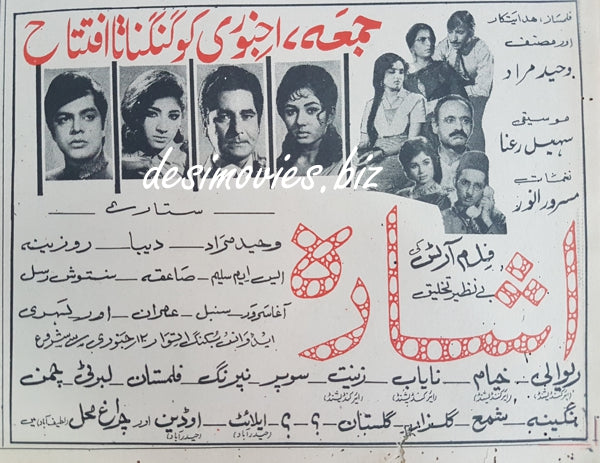 جمعہ، ۷ جنوری کو گنگناتا افتتاح
فلمساز، ہدایتکار
اور مصنف
وحید مراد
موسیقی
سہیل رعنا
نغمات
مسرور انور
desimovies.biz
ستارے
وحید مراد – دیبا – روزینہ
ایس ایم سلیم – صاعقہ – سنتوش رسل
آغا سرور – سنبل – عمران – اور لہری
ایڈوانس بکنگ اتوار ۲ جنوری سے شروع
فلم آرٹس کی
بے نظیر تخلیق
اشارہ
ریوالی – خیام – نایاب – زینت – سوپر – نیرنگ – فلمستان – لبرٹی – چمن
(ایرکنڈیشنڈ) (ایرکنڈیشنڈ) (ایرکنڈیشنڈ)
نگینہ – شمع – گلزار – گلستان – ؟ – ؟ – ایلائٹ – اوڈین اور چراغ محل
(حیدرآباد) (حیدرآباد) (لطیف آباد) میں